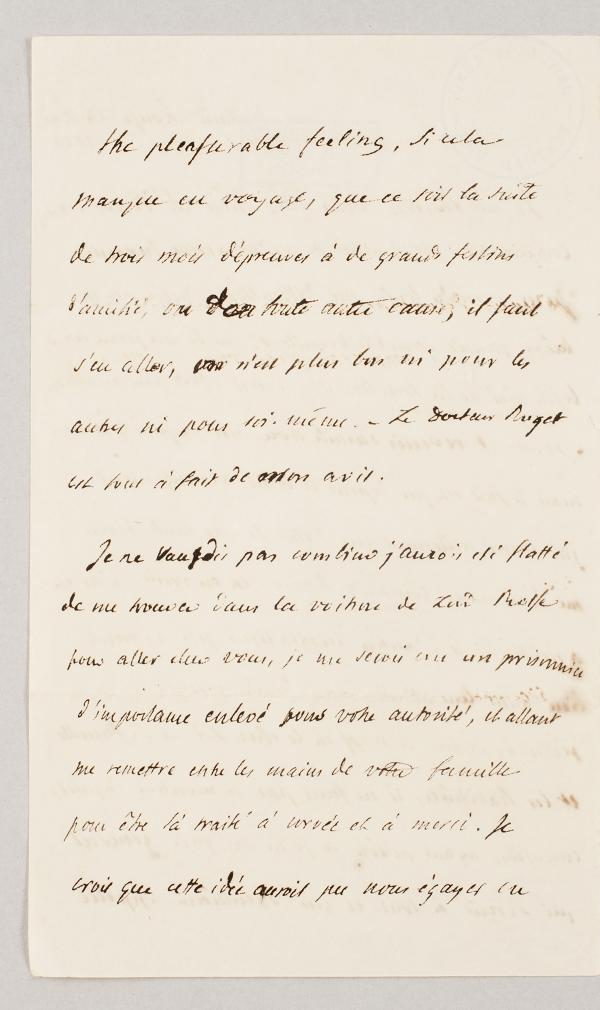 the pleasurable feeling, si cela
manque en voyage, que ce soit la suite
de trois mois d'épreuves à de grands festins
d'amitié, ou toute autre cause, il faut
s'en aller, n'est plus bon ni pour les
autres ni pour soi-même. – Le Docteur Roget
est tout à fait de mon avis.
Je ne vous dis pas combien j'aurois été flatté
de me trouver dans la voiture de
pour aller chez vous, je me serois cru un prisonnier
d'importance enlevé pour votre autorité, et allant
me remettre entre les mains de votre famille
pour être là traité à corvée et à merci. Je
crois que cette idée auroit pu nous égayer en